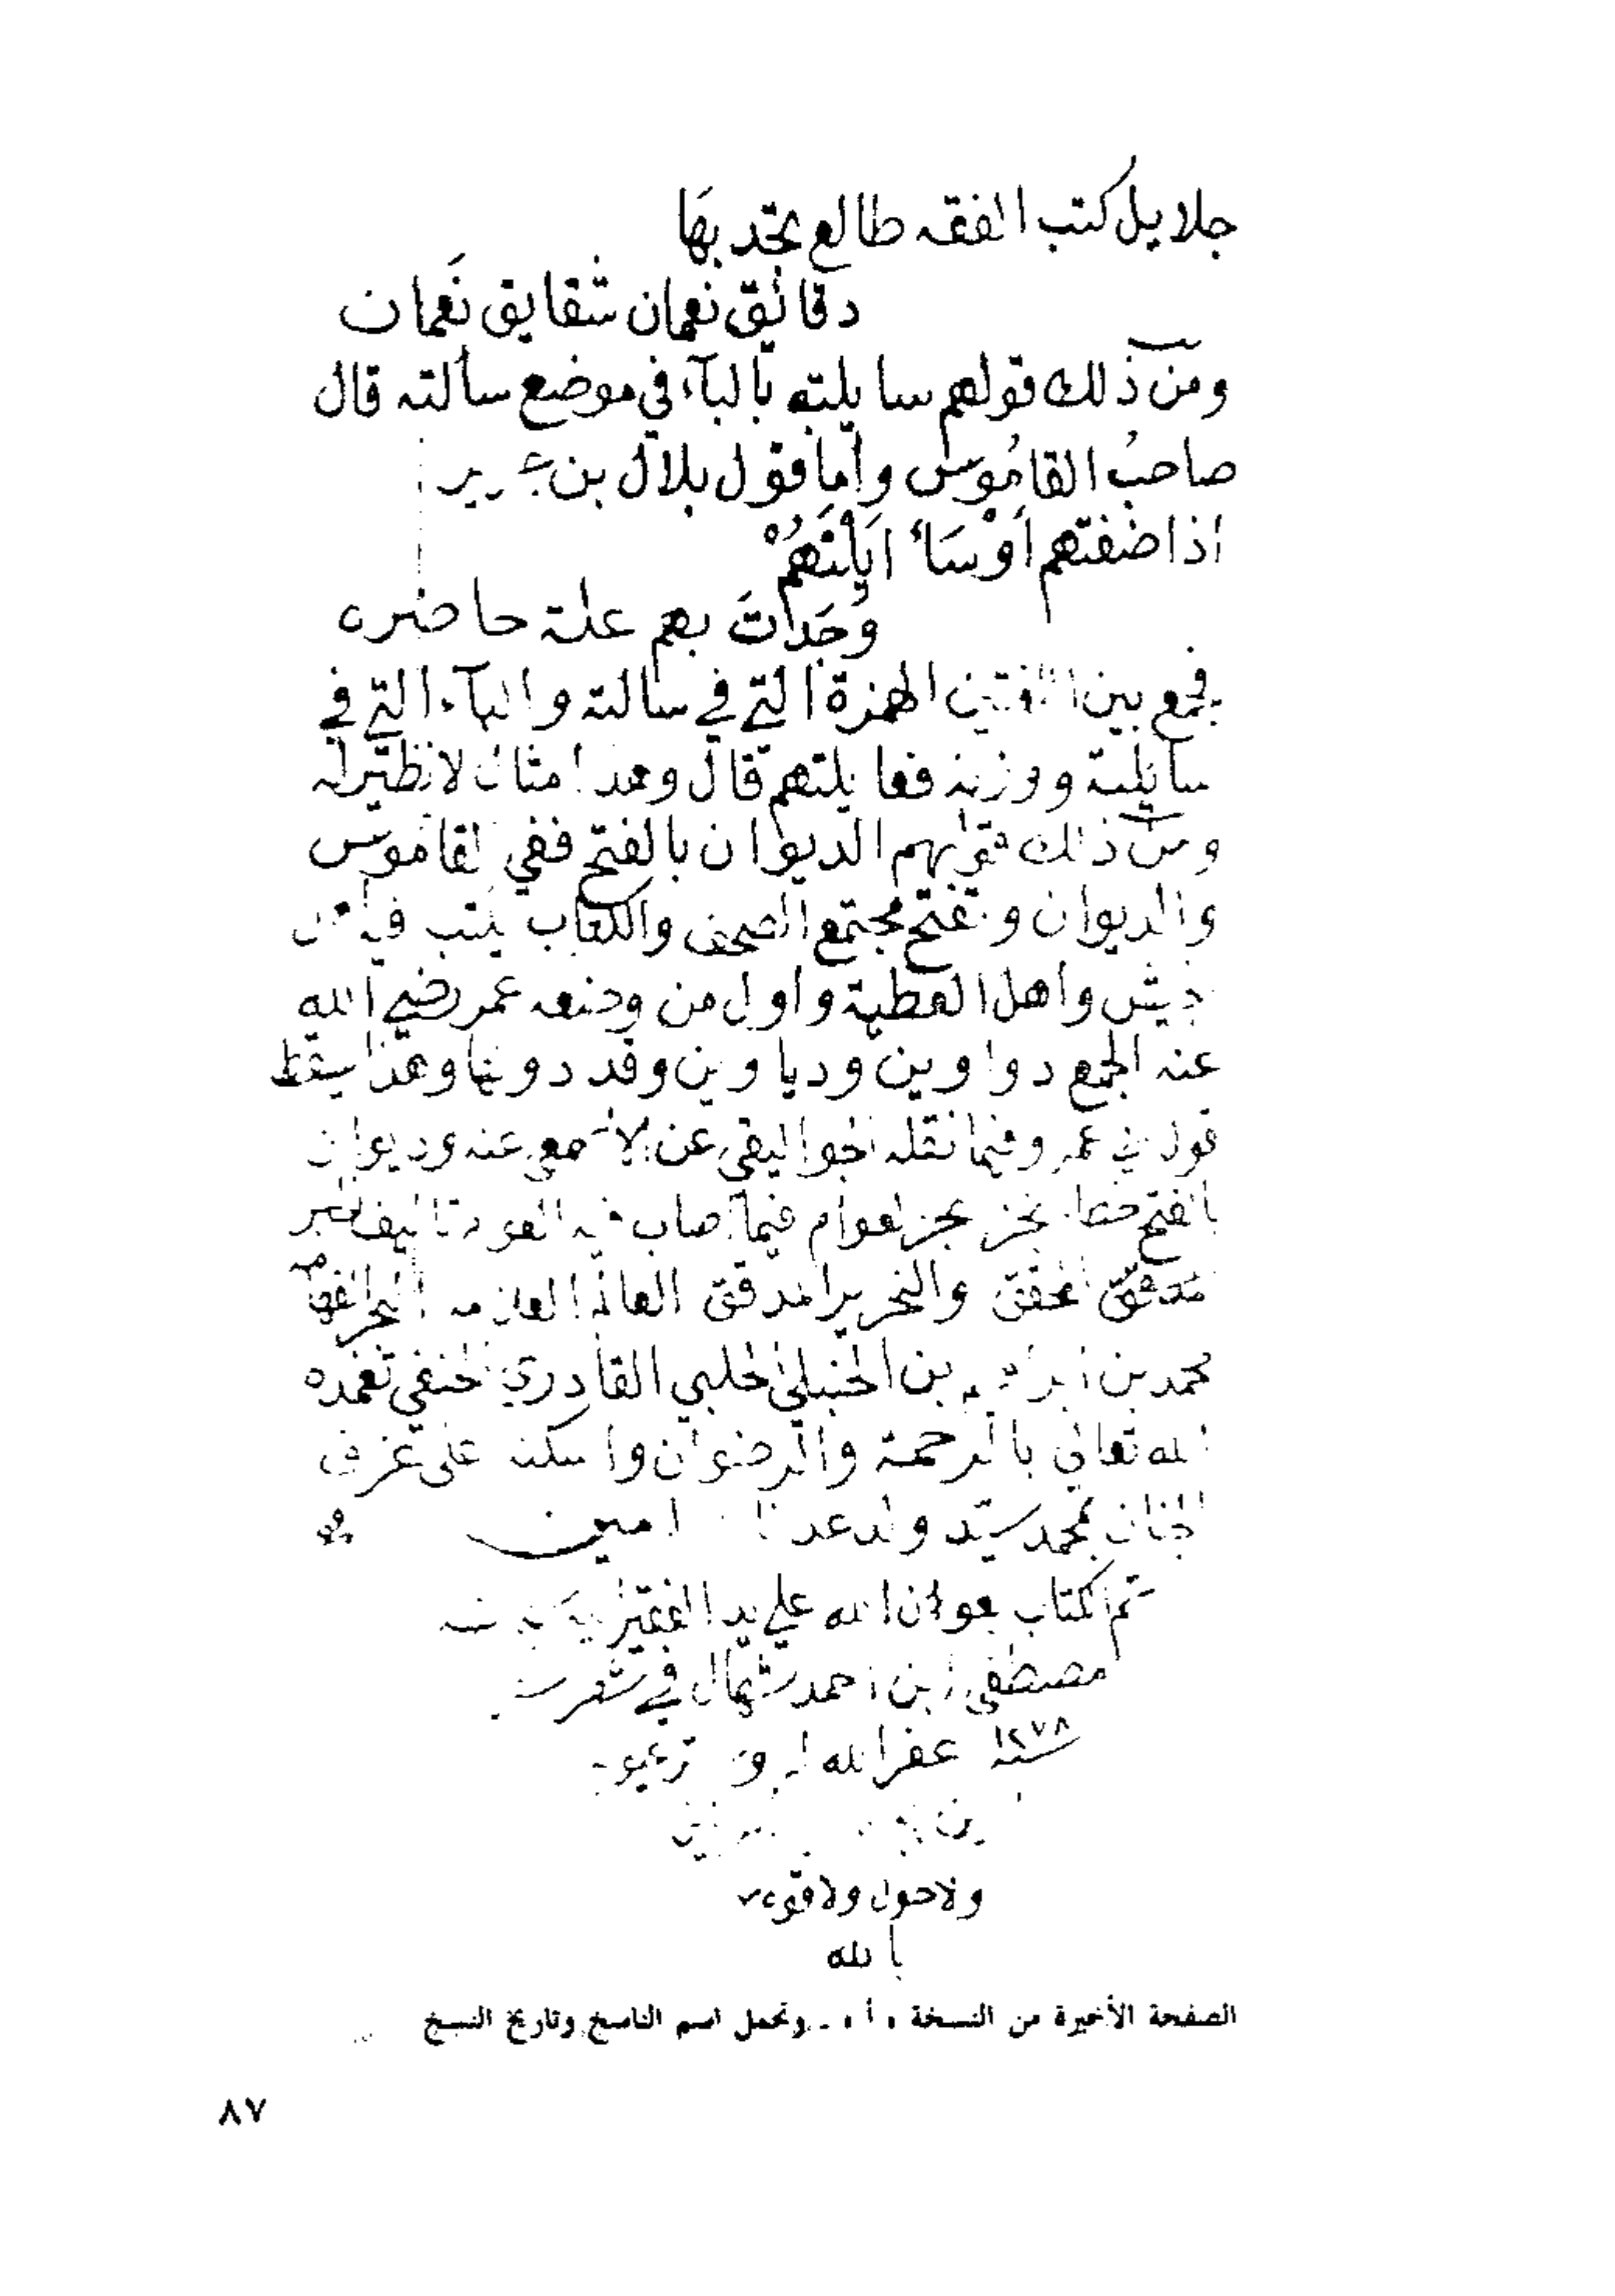 جلايل كتب الفقه طالع تجد بها
دقائق نعمان شقايق نعمان
ومن ذلك قولهم سايلته باليآء في موضع سألته قال
صاحب القاموس وأما قول بلال بن جرير
اذا ضفتهم أوْسَاءَ ايَلْتَهُمْ
وَجَدتَ بهم علة حاضره
فجمع بين اللغتين الهمزة التي في سالته واليآء التي في
سايلته ووزنه فعايلتهم قال وهذا مثال لا نظير له
ومن ذلك قولهم الديوان بالفتح ففي القاموس
والديوان وتفتح مجتمع الصحف والكتاب يكتب فيه
واهل العطية واول من وضعه عمر رضي الله
عنه الجمع دواوين ودياوين وقد دونها وهذا يسقط
قول عمرو فيما نقله الجواليقي عن الاصمعي عنه وديوان
بالفتح خطا نجز بحر العوام فيما اصاب فيه العوام تاليف
المحقق والنحرير المدقق العالم العلامه البحر الفهامه
محمد بن ابراهيم بن الحنبلي الحلبي القادري الحنفي تغمده
الله تعالى بالرحمة والرضوان واسكنه على غرف
الجنان بمحمد سيد ولد عدنان امين
تم الكتاب بعون الله علي يد الفقير
مصطفى ابن احمد في شهر
سنة ١٢٧٨ غفر الله له
ولا حول ولا قوه
بالله
الصفحة الأخيرة من النسخة «أ» . وتحمل اسم الناسخ وتاريخ النسخ
٨٧